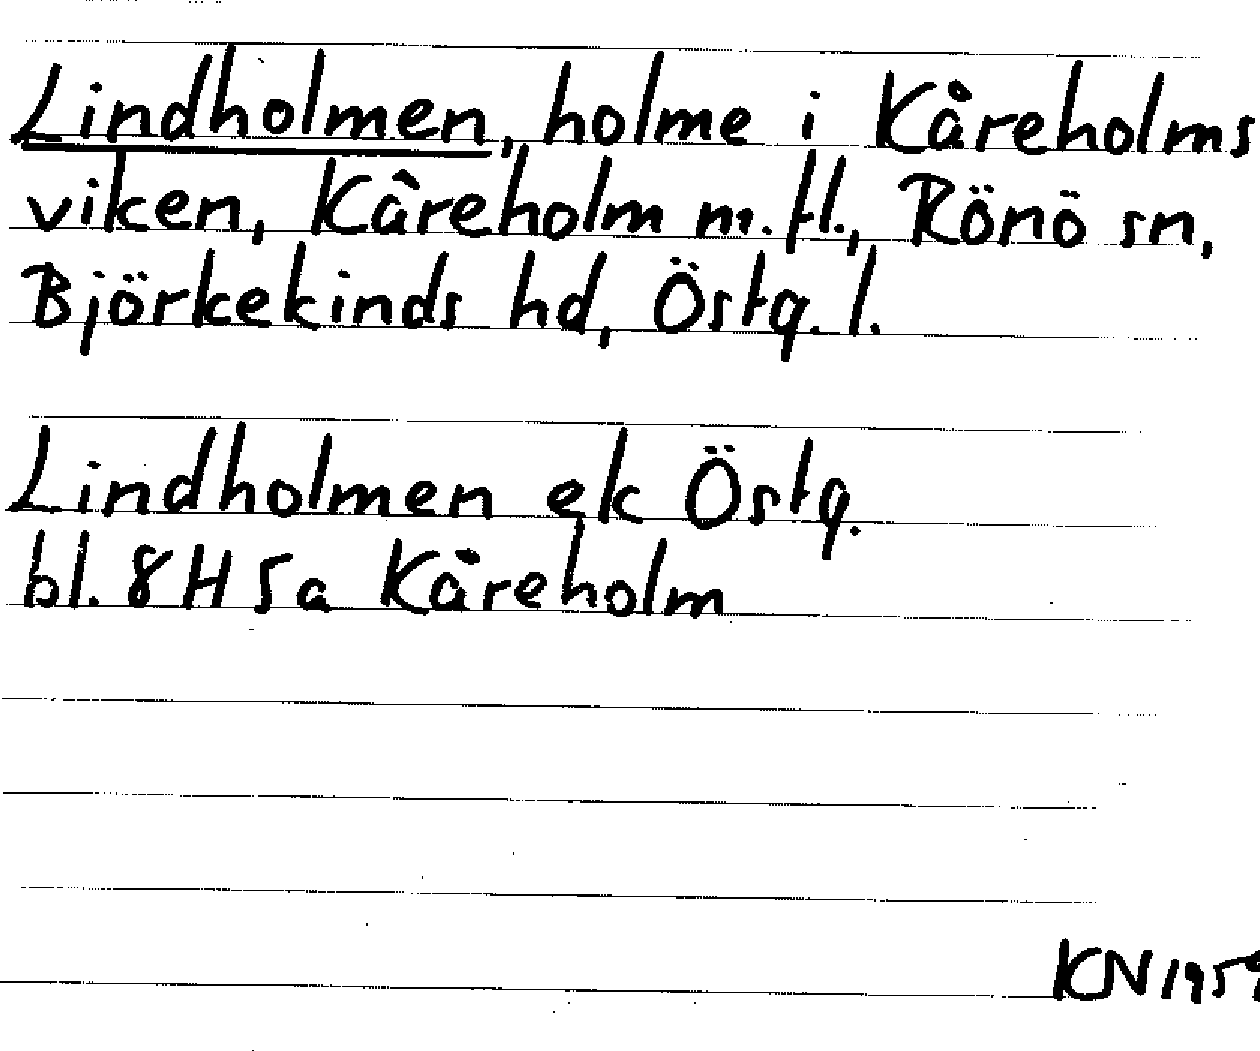 Lindholmen, holme i Kåreholms
viken, Kåreholm m.fl., Rönö sn,
Björkekinds hd, Östg. l.
Lindholmen ek Östg.
bl. 8H5a Kåreholm
KN1959